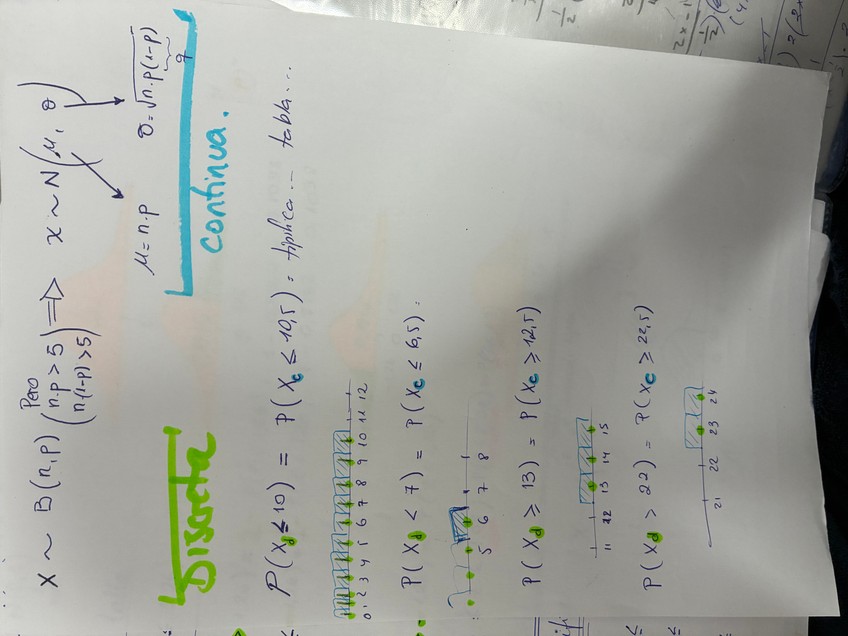 X ~ B(n,p) (Pero n·p > 5 n·(1-p) > 5) ⇒ x ~ N(μ, σ)
μ = n·p σ = √n·p(1-p)
q
Discreta continua.
P(Xd ≤ 10) = P(Xc ≤ 10,5) = tipifica... tabla...
0 1 2 3 4 5 6 7 8 9 10 11 12
P(Xd < 7) = P(Xc ≤ 6,5) =
5 6 7 8
P(Xd ≥ 13) = P(Xc ≥ 12,5)
11 12 13 14 15
P(Xd > 22) = P(Xc ≥ 22,5)
21 22 23 24